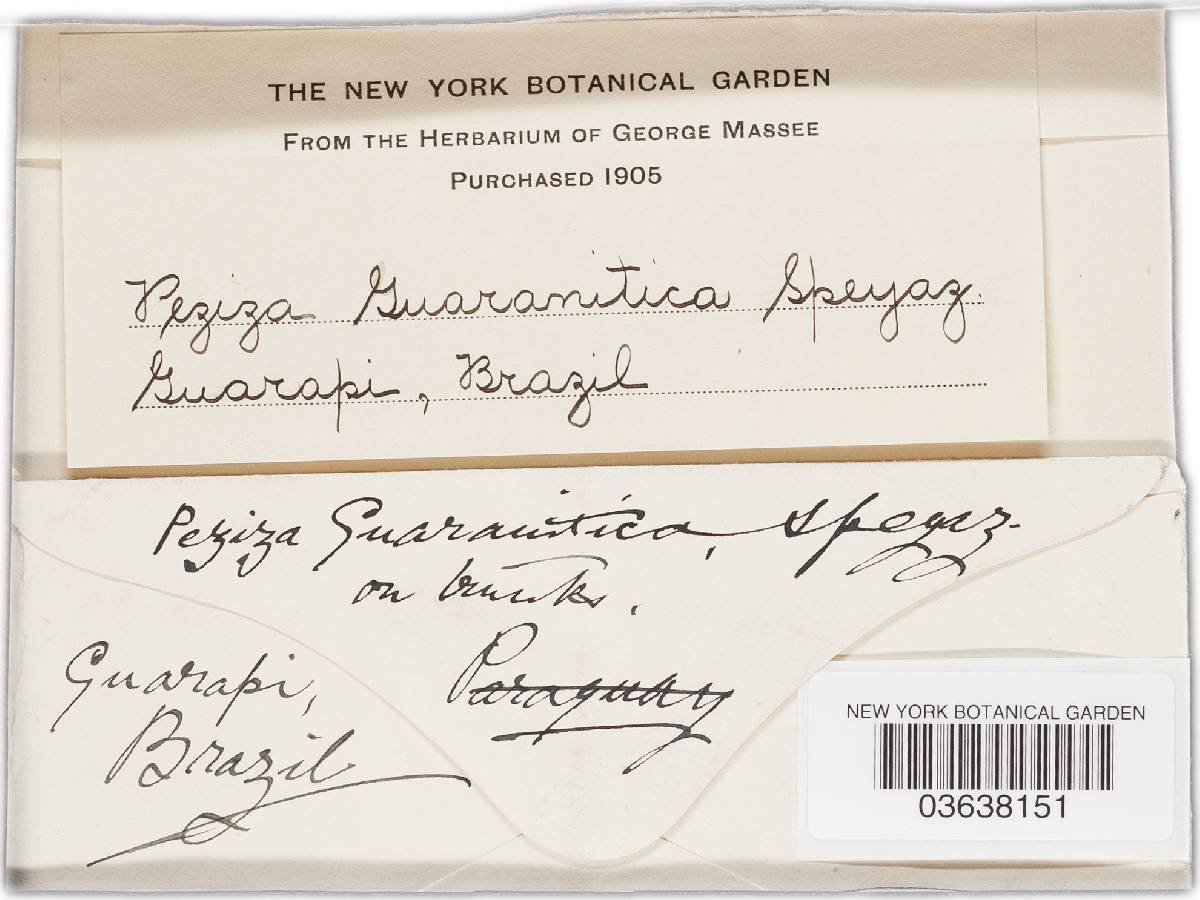 THE NEW YORK BOTANICAL GARDEN
FROM THE HERBARIUM OF GEORGE MASSEE
PURCHASED 1905
Peziza Guaranitica Speyaz.
Guarapi, Brazil
Peziza Guaranitica, Spegaz.
on trunks.
Guarapi,
Brazil
Paraguay
NEW YORK BOTANICAL GARDEN
03638151